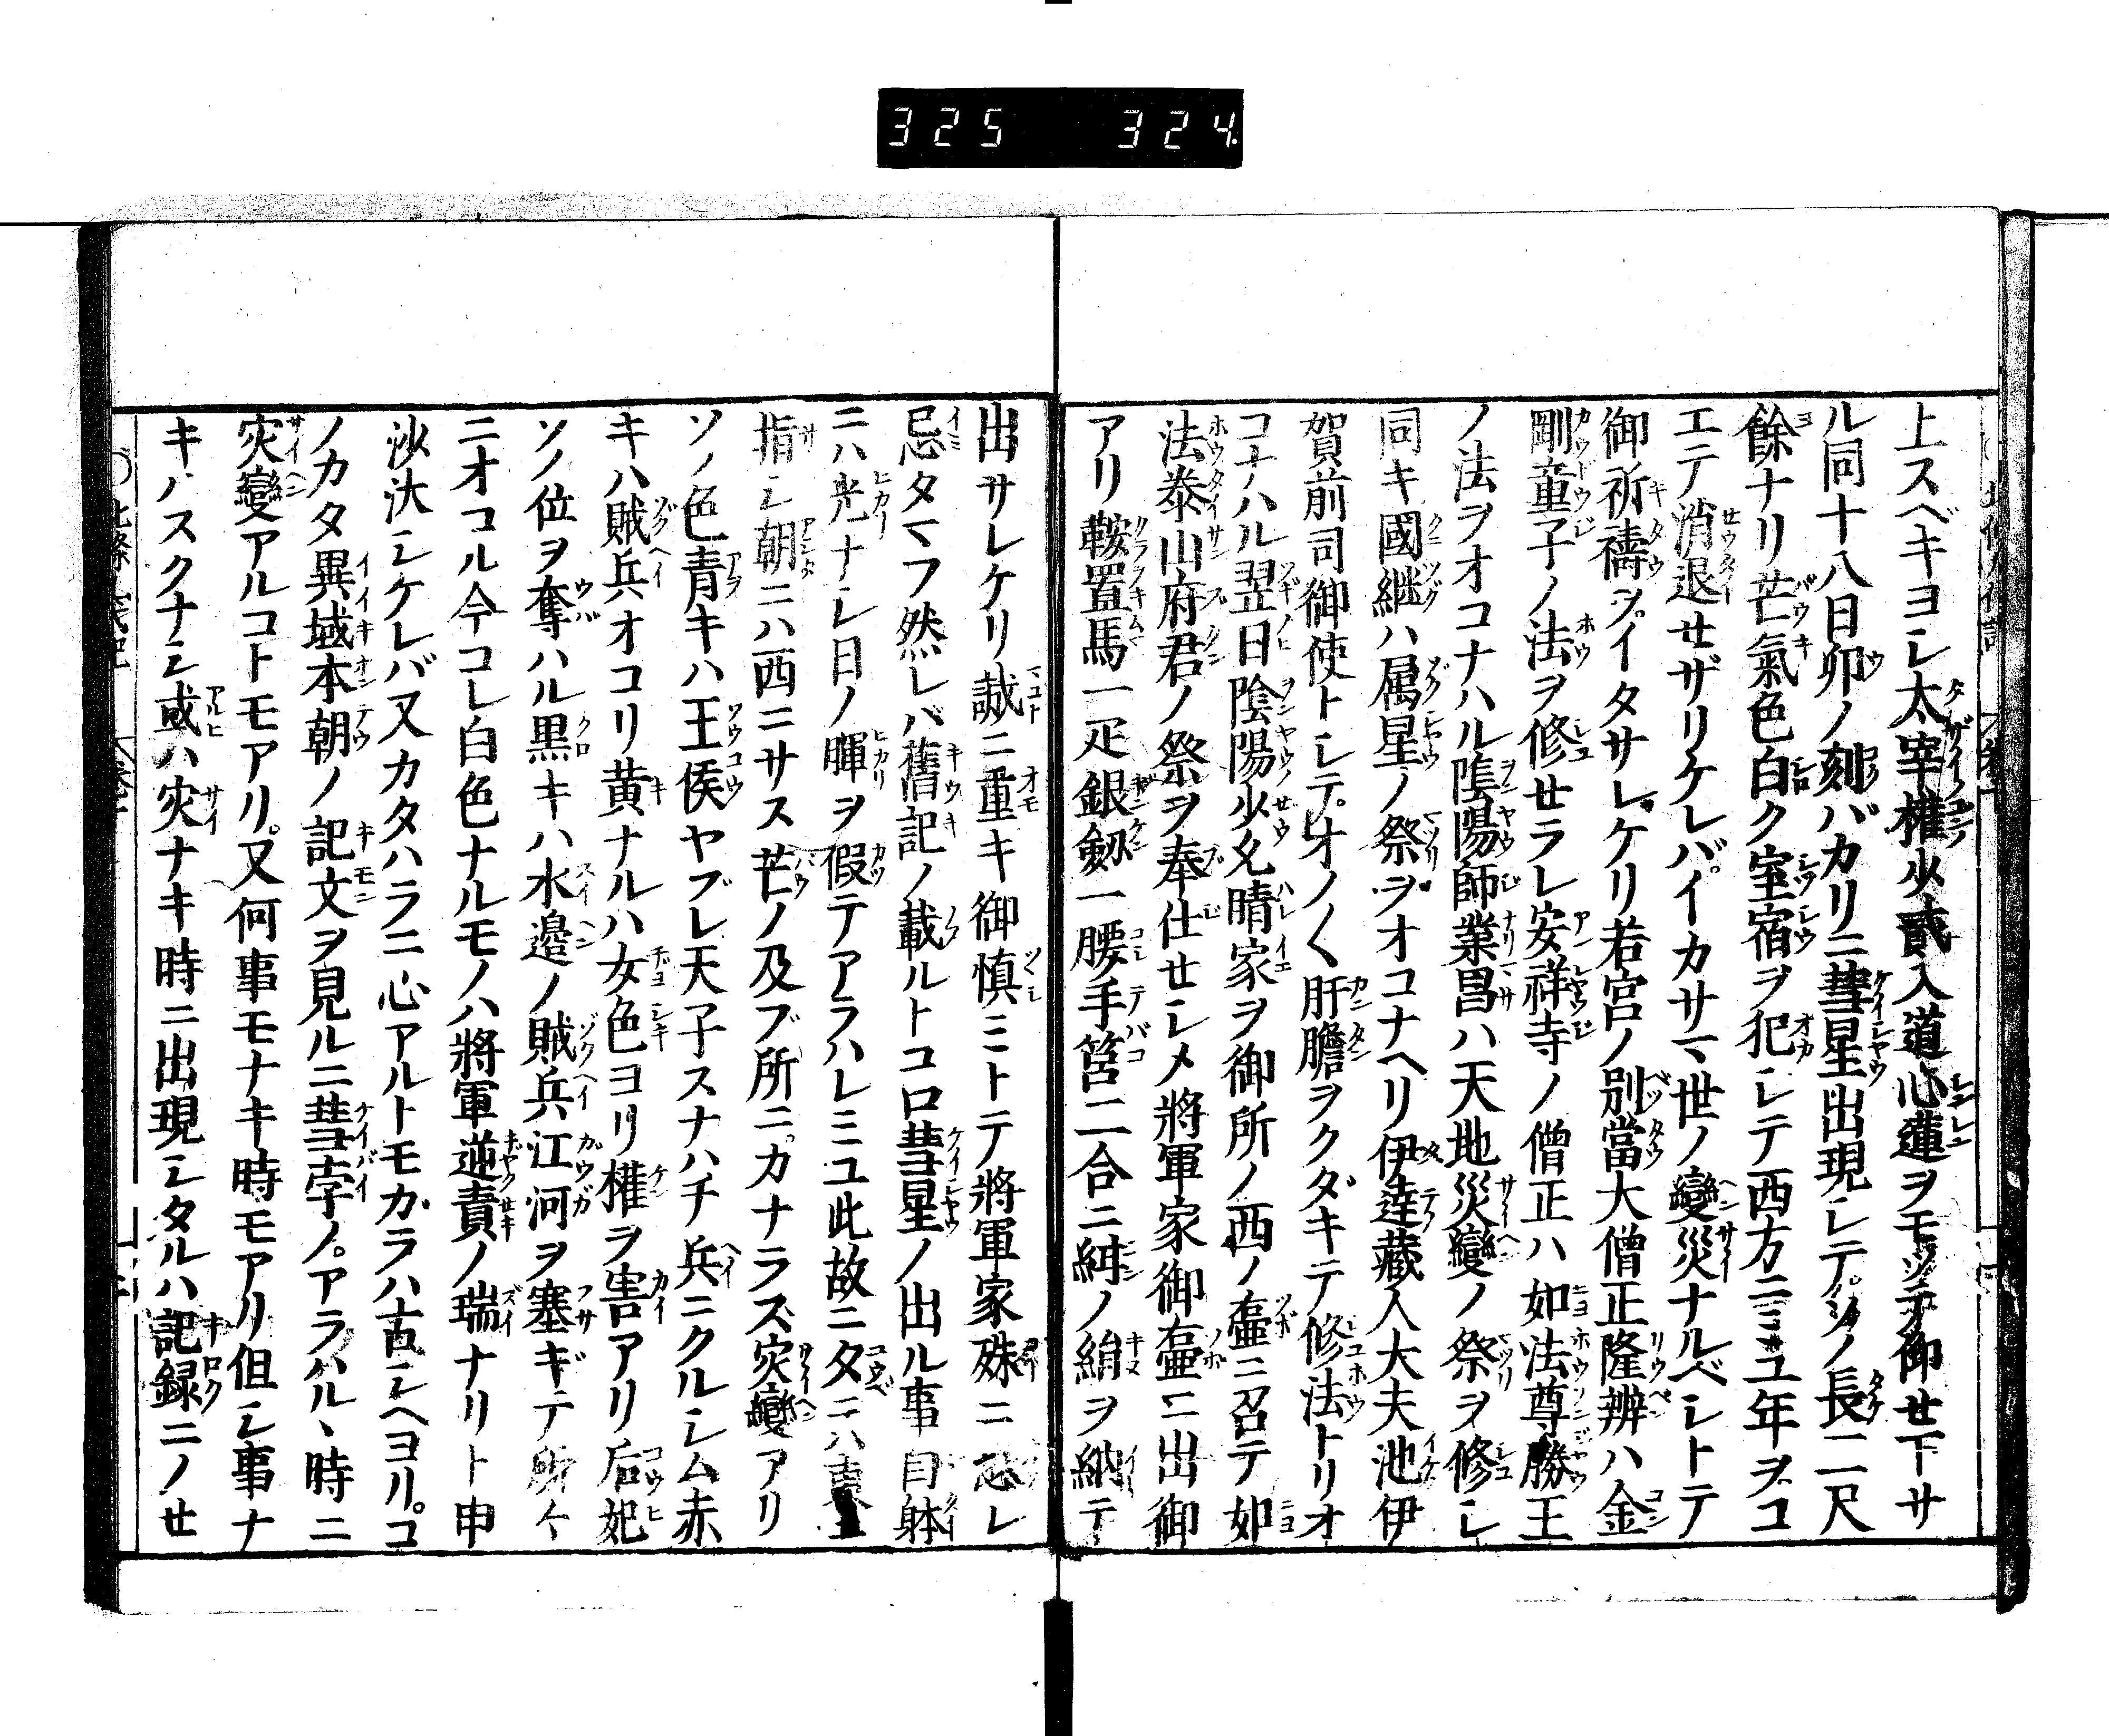 325 324
上スベキヨシ太宰權少貳入道心蓮ヲモツテ仰せ下サ
ル同十八日卯ノ刻バカリニ彗星出現シテソノ長二尺
餘ナリ芒氣色白ク室宿ヲ犯シテ西方ニミユ年ヲコ
エテ消退せザリケレバイカサマ世ノ變災ナルベシトテ
御祈禱ヲイタサレケリ若宮ノ別當大僧正隆辨ハ金
剛童子ノ法ヲ修せラレ安祥寺ノ僧正ハ如法尊勝王
ノ法ヲオコナハル陰陽師業昌ハ天地災變ノ祭ヲ修シ
同キ國継ハ属星ノ祭ヲオコナヘリ伊達藏人大夫池伊
賀前司御使トシテオノ〱肝膽ヲクダキテ修法トリオ
コナハル翌日陰陽少允晴家ヲ御所ノ西ノ壷ニ召テ如
法泰山府君ノ祭ヲ奉仕せシメ將軍家御壷ニ出御
アリ鞍置馬一疋銀劔一腰手筥二合ニ紺ノ絹ヲ納テ
出サレケリ誠ニ重キ御慎ミトテ將軍家殊ニ恐レ
忌タマフ然レバ舊記ノ載ルトコロ彗星ノ出ル事自躰
ニハ光ナシ日ノ暉ヲ假テアラハレミユ此故ニタニハ東ヲ
指シ朝ニハ西ニサス芒ノ及ブ所ニカナラズ灾變アリ
ソノ色青キハ王侯ヤブレ天子スナハチ兵ニクルシム赤
キハ賊兵オコリ黄ナルハ女色ヨリ權ヲ害アリ后妃
ソノ位ヲ奪ハル黒キハ水邉ノ賊兵江河ヲ塞ギテ所々
ニオコル今コレ白色ナルモノハ將軍逆責ノ瑞ナリト申
沙汰シケレバ又カタハラニ心アルトモガラハ古シヘヨリコ
ノカタ異域本朝ノ記文ヲ見ルニ彗孛ノアラハル丶時ニ
灾變アルコトモアリ又何事モナキ時モアリ但シ事ナ
キハスクナシ或ハ灾ナキ時ニ出現シタルハ記録ニノせ